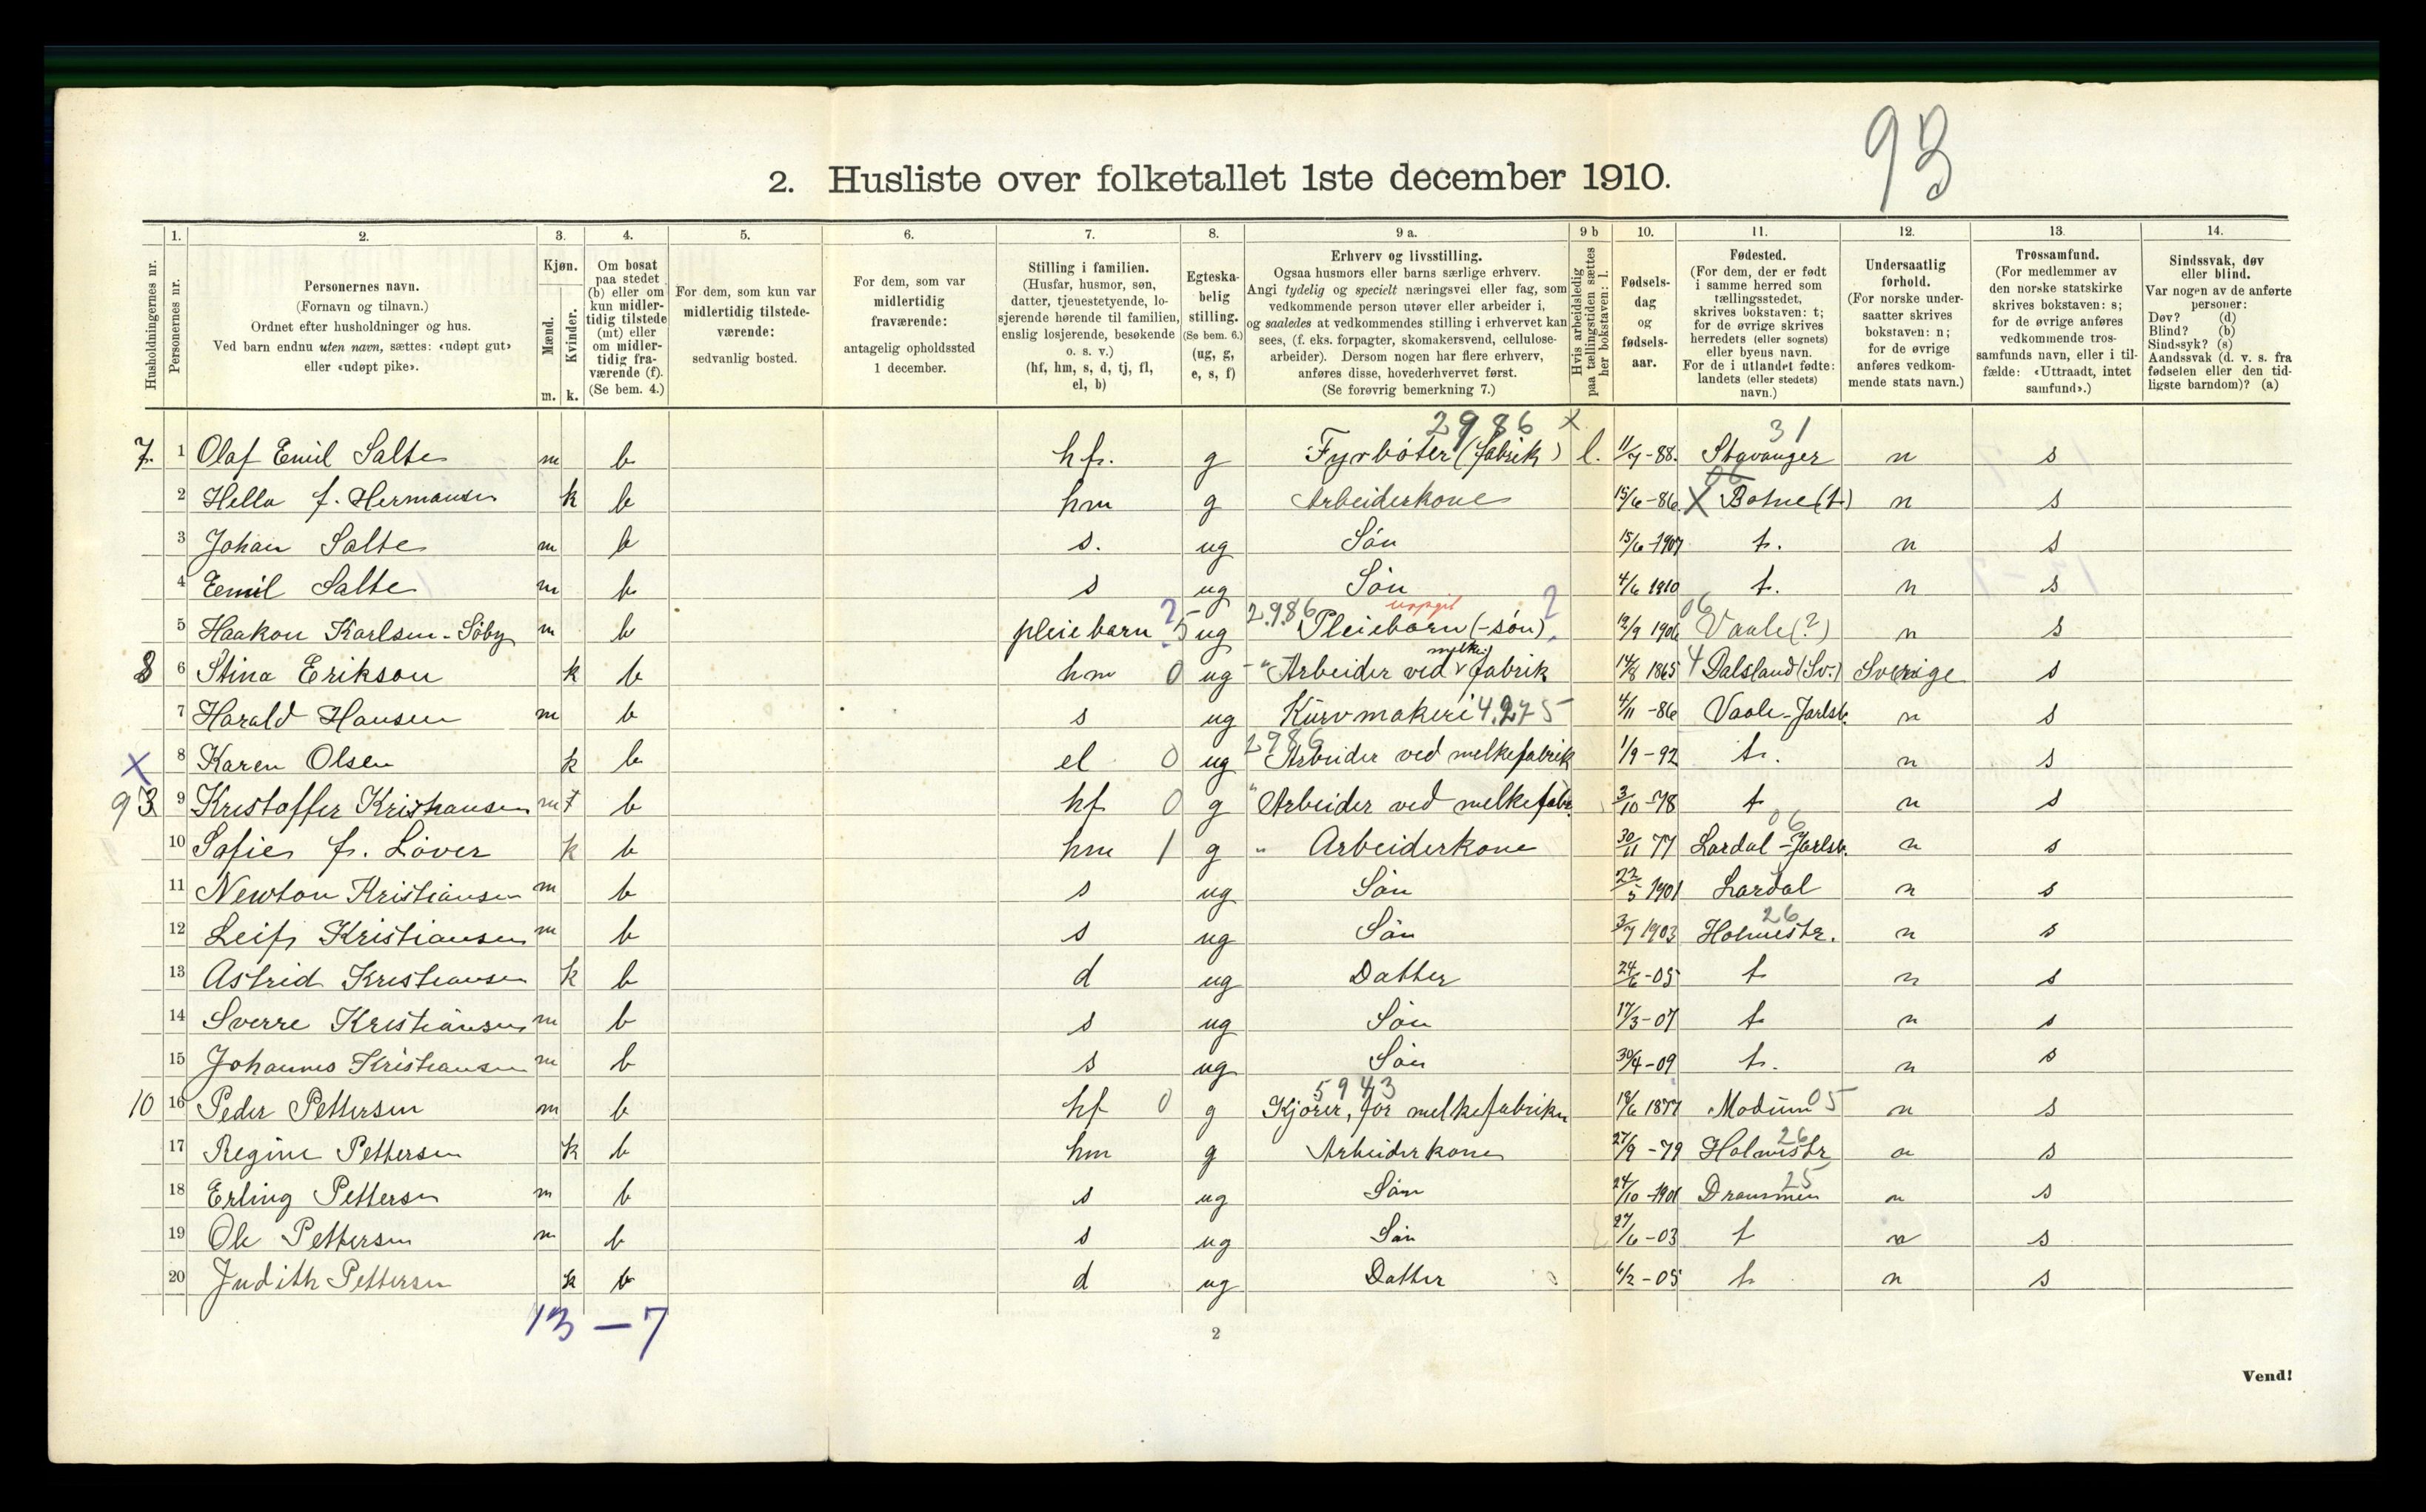 93
2. Husliste over folketallet 1ste december 1910.
Husholdningernes nr.
1.
Personernes nr.
2.
Personernes navn.
(Fornavn og tilnavn.)
Ordnet efter husholdninger og hus.
Ved barn endnu uten navn, sættes: «udøpt gut»
eller «udøpt pike».
3.
Kjøn.
Mænd.
Kvinder.
m. k.
4.
Om bosat
paa stedet
(b) eller om
kun midler-
tidig tilstede
(mt) eller
om midler-
tidig fra-
værende (f).
(Se bem. 4.)
5.
For dem, som kun var
midlertidig tilstede-
værende:
sedvanlig bosted.
6.
For dem, som var
midlertidig
fraværende:
antagelig opholdssted
1 december.
7.
Stilling i familien.
(Husfar, husmor, søn,
datter, tjenestetyende, lo-
sjerende hørende til familien,
enslig losjerende, besøkende
o. s. v.)
(hf, hm, s, d, tj, fl,
el, b)
8.
Egteska-
belig
stilling.
(Se bem. 6.)
(ug, g,
e, s, f)
9 a.
Erhverv og livsstilling.
Ogsaa husmors eller barns særlige erhverv.
Angi tydelig og specielt næringsvei eller fag, som
vedkommende person utøver eller arbeider i,
og saaledes at vedkommendes stilling i erhvervet kan
sees, (f. eks. forpagter, skomakersvend, cellulose-
arbeider). Dersom nogen har flere erhverv,
anføres disse, hovederhvervet først.
(Se forøvrig bemerkning 7.)
9 b
Hvis arbeidsledig
paa tællingstiden sættes
her bokstaven: l.
10.
Fødsels-
dag
og
fødsels-
aar.
11.
Fødested.
(For dem, der er født
i samme herred som
tællingsstedet,
skrives bokstaven: t;
for de øvrige skrives
herredets (eller sognets)
eller byens navn.
For de i utlandet fødte:
landets (eller stedets)
navn.)
12.
Undersaatlig
forhold.
(For norske under-
saatter skrives
bokstaven: n;
for de øvrige
anføres vedkom-
mende stats navn.)
13.
Trossamfund.
(For medlemmer av
den norske statskirke
skrives bokstaven: s;
for de øvrige anføres
vedkommende tros-
samfunds navn, eller i til-
fælde: «Uttraadt, intet
samfund».)
14.
Sindssvak, døv
eller blind.
Var nogen av de anførte
personer:
Døv? (d)
Blind? (b)
Sindssyk? (s)
Aandssvak (d. v. s. fra
fødselen eller den tid-
ligste barndom)? (a)
2986 x 31
7. 1 Olaf Emil Salte m b hf. g Fyrböter (fabrik) l. 11/7-88. Stavanger n s
06
2 Hella f. Hermansen k b hm g Arbeiderkone 15/6-86 X Botne (t.) n s
3 Johan Salte m b s. ug Sön 15/6-1907 t. n s
4 Eemil Salte m b s ug Sön 4/6 1910 t. n s
2986 06
5 Haakon Karlsen-Söby m b pleiebarn ? 5 ug Pleiebarn (-sön) ? 12/9 1906 Vaale (?) n s
melke
8 6 Stina Erikson k b hm 0 ug -"- Arbeider ved v fabrik 14/8 1865 4 Dalsland (Sv.) Sverige s
7 Harald Hansen m b s ug Kurvmakeri 4.275 4/11-86 Vaale-Jarlsb. n s
2986
X 8 Karen Olsen k b el 0 ug Arbeider ved melkefabrik 1/9-92 t. n s
93 9 Kristoffer Kristiansen m b hf 0 g " Arbeider ved melkefabr. 3/10-78 t n s
06
10 Sofie f. Löver k b hm 1 g " Arbeiderkone 30/11 77 Lardal-Jarlsb. n s
11 Newton Kristiansen m b s ug Sön 22/5 1901 Lardal n s
26
12 Leif Kristiansen m b s ug Sön 3/7 1903 Holmestr. n s
13 Astrid Kristiansen k b d ug Datter 24/6-05 t n s
14 Sverre Kristiansen m b s ug Sön 17/3-07 t n s
15 Johannes Kristiansen m b s ug Sön 30/4-09 t. n s
5943
10 16 Peder Pettersen m b hf 0 g Kjörer, for melkefabriken 18/6 1877 Modum 05 n s
26
17 Regine Pettersen k b hm g Arbeiderkone 27/9-79 Holmestr n s
25
18 Erling Pettersn m b s ug Sön 24/10-1901 Drammen n s
19 Ole Pettersen m b s ug Sön 27/6-03 t n s
20 Judith Pettersen k b d ug Datter 6/2-05 t n s
13 - 7
2
Vend!